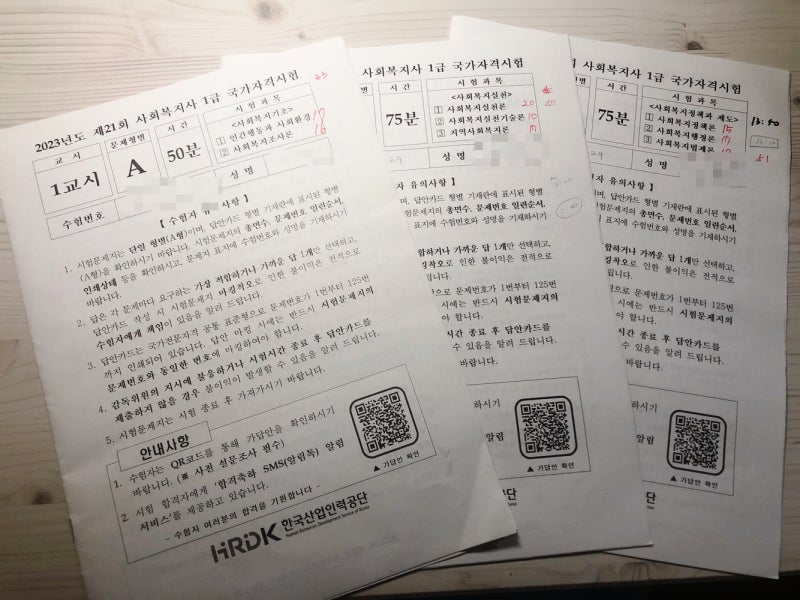 2023년도 제21회 사회복지사 1급 국가자격시험
교 시
문제형별
시 간
시 험 과 목
1교시
A
50분
<사회복지기초>
1 인간행동과 사회환경
2 사회복지조사론
17
16
33
수험번호
성 명
【 수험자 유의사항 】
1. 시험문제지는 단일 형별(A형)이며, 답안카드 형별 기재란에 표시된 형별
(A형)을 확인하시기 바랍니다. 시험문제지의 총면수, 문제번호 일련순서,
인쇄상태 등을 확인하시고, 문제지 표지에 수험번호와 성명을 기재하시기
바랍니다.
2. 답은 각 문제마다 요구하는 가장 적합하거나 가까운 답 1개만 선택하고,
답안카드 작성 시 시험문제지 마킹착오로 인한 불이익은 전적으로
수험자에게 책임이 있음을 알려 드립니다.
3. 답안카드는 국가전문자격 공통 표준형으로 문제번호가 1번부터 125번
까지 인쇄되어 있습니다. 답안 마킹 시에는 반드시 시험문제지의
문제번호와 동일한 번호에 마킹하여야 합니다.
4. 감독위원의 지시에 불응하거나 시험시간 종료 후 답안카드를
제출하지 않을 경우 불이익이 발생할 수 있음을 알려 드립니다.
5. 시험문제지는 시험 종료 후 가져가시기 바랍니다.
안내사항
1. 수험자는 QR코드를 통해 가답안을 확인하시기
바랍니다. (※ 사전 설문조사 필수)
2. 시험 합격자에게 '합격축하 SMS(알림톡) 알림
서비스'를 제공하고 있습니다.
- 수험자 여러분의 합격을 기원합니다 -
▲ 가답안 확인
HRDK 한국산업인력공단
Human Resources Development Service of Korea
사회복지사 1급 국가자격시험
시 간
시 험 과 목
75분
<사회복지실천>
1 사회복지실천론
2 사회복지실천기술론
3 지역사회복지론
20
29
성 명
자 유의사항 】
며, 답안카드 형별 기재란에 표시된 형별
험문제지의 총면수, 문제번호 일련순서,
표지에 수험번호와 성명을 기재하시기
합하거나 가까운 답 1개만 선택하고,
킹착오로 인한 불이익은 전적으로
드립니다.
으로 문제번호가 1번부터 125번
시에는 반드시 시험문제지의
야 합니다.
시간 종료 후 답안카드를
수 있음을 알려 드립니다.
바랍니다.
하시기
알림
▲ 가답안 확인
사회복지사 1급 국가자격시험
시 간
시 험 과 목
75분
<사회복지정책과 제도>
1 사회복지정책론
2 사회복지행정론
3 사회복지법제론
15
13:50
51
29
성 명
자 유의사항 】
며, 답안카드 형별 기재란에 표시된 형별
험문제지의 총면수, 문제번호 일련순서,
표지에 수험번호와 성명을 기재하시기
합하거나 가까운 답 1개만 선택하고,
킹착오로 인한 불이익은 전적으로
드립니다.
으로 문제번호가 1번부터 125번
시에는 반드시 시험문제지의
야 합니다.
시간 종료 후 답안카드를
수 있음을 알려 드립니다.
바랍니다.
하시기
알림
▲ 가답안 확인